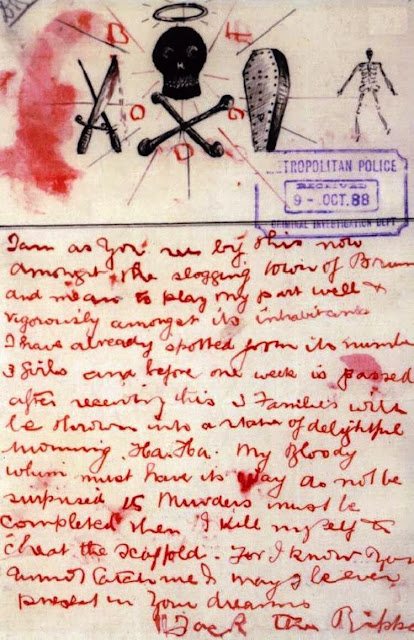 B
O
O
D
TROPOLITAN POLICE
RECEIVED
9 - .OCT.88
CRIMINAL INVESTIGATION DEPT
I am as you see by this now
amongst the slogging town of Brum
and mean to play my part well &
vigorously amongst its inhabitants
I have already spotted from its number
3 girls and before one week is passed
after receiving this 3 Families will
be thrown into a state of delightful
mourning. Ha. Ha. My Bloody
whim must have its way do not be
surprised 15 Murders must be
completed then I kill myself to
cheat the scaffold. For I know you
cannot catch me & I may be ever
present in your dreams
Jack the Rippe